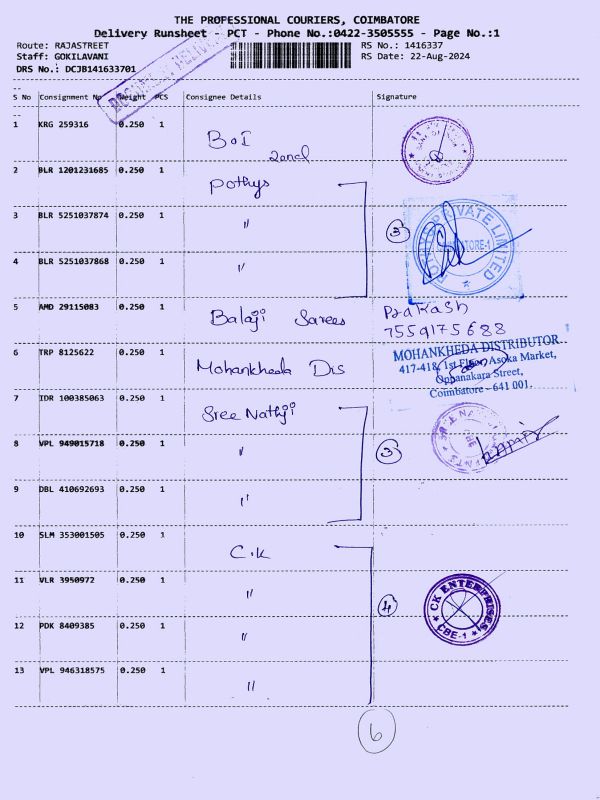 THE PROFESSIONAL COURIERS, COIMBATORE
Delivery Runsheet - PCT - Phone No.:0422-3505555 - Page No.:1
Route: RAJASTREET RS No.: 1416337
Staff: GOKILAVANI RS Date: 22-Aug-2024
DRS No.: DCJB141633701
S No Consignment No Weight PCS Consignee Details Signature
1 KRG 259316 0.250 1 BOI
zonal
2 BLR 1201231685 0.250 1 Pothys
3 BLR 5251037874 0.250 1 " 3 PRIVATE LIMITED
4 BLR 5251037868 0.250 1 "
5 AMD 29115083 0.250 1 Balaji Sarees Prakash
7559175688
6 TRP 8125622 0.250 1 Mohankheda Dis MOHANKHEDA DISTRIBUTOR
417-418, 1st Floor, Asoka Market,
Oppanakara Street,
Coimbatore - 641 001.
7 IDR 100385063 0.250 1 Sree Nathji
8 VPL 949015718 0.250 1 " 3
9 DBL 410692693 0.250 1 "
10 SLM 353001505 0.250 1 C.K
11 VLR 3950972 0.250 1 " 4 CK ENTERPRISES
CBE-1
12 PDK 8409385 0.250 1 "
13 VPL 946318575 0.250 1 "
6